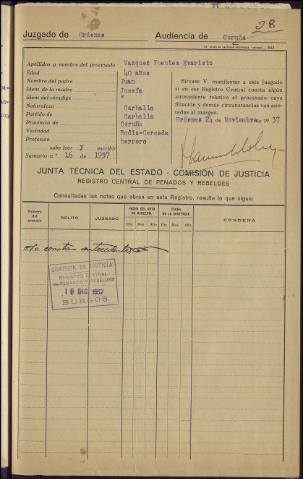 28
Juzgado de Ordenes Audiencia de Coruña
Apellidos y nombre del procesado Vazquez Fuentes Evaristo
Edad 40 años
Nombre del padre Juan
Idem de la madre Josefa
Idem del cónyuge "
Naturaleza Carballo
Partido de Carballo
Provincia de Coruña
Vecindad Rodis-Cerceda
Profesión herrero
sabe leer y escribir
Sumario n.º 16 de 1937
Sírvase V. manifestar a este Juzgado
si en ese Registro Central consta algún
antecedente relativo al procesado cuya
filiación y demás circunstancias van anotadas
al margen.
Ordenes 24 de Noviembre de 1937
JUNTA TÉCNICA DEL ESTADO - COMISIÓN DE JUSTICIA
REGISTRO CENTRAL DE PENADOS Y REBELDES
Consultadas las notas que obran en este Registro, resulta lo que sigue:
DELITO JUZGADO FECHA DEL AUTO DE REBELDÍA FECHA DE LA SENTENCIA CONDENA
Día Mes Año Día Mes Año
No constan antecedentes
COMISIÓN DE JUSTICIA
REGISTRO CENTRAL
DE PENADOS Y REBELDES
10 DIC. 1937
BURGOS